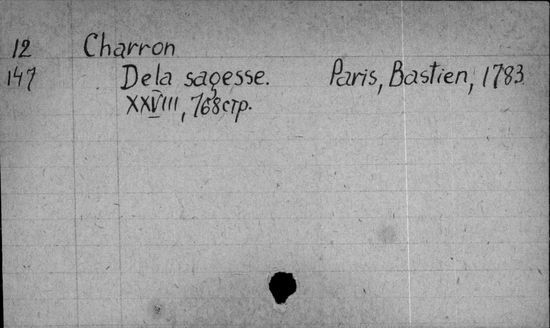 12 Charron
147 De la sagesse. Paris, Bastien, 1783
XXVIII, 768 стр.